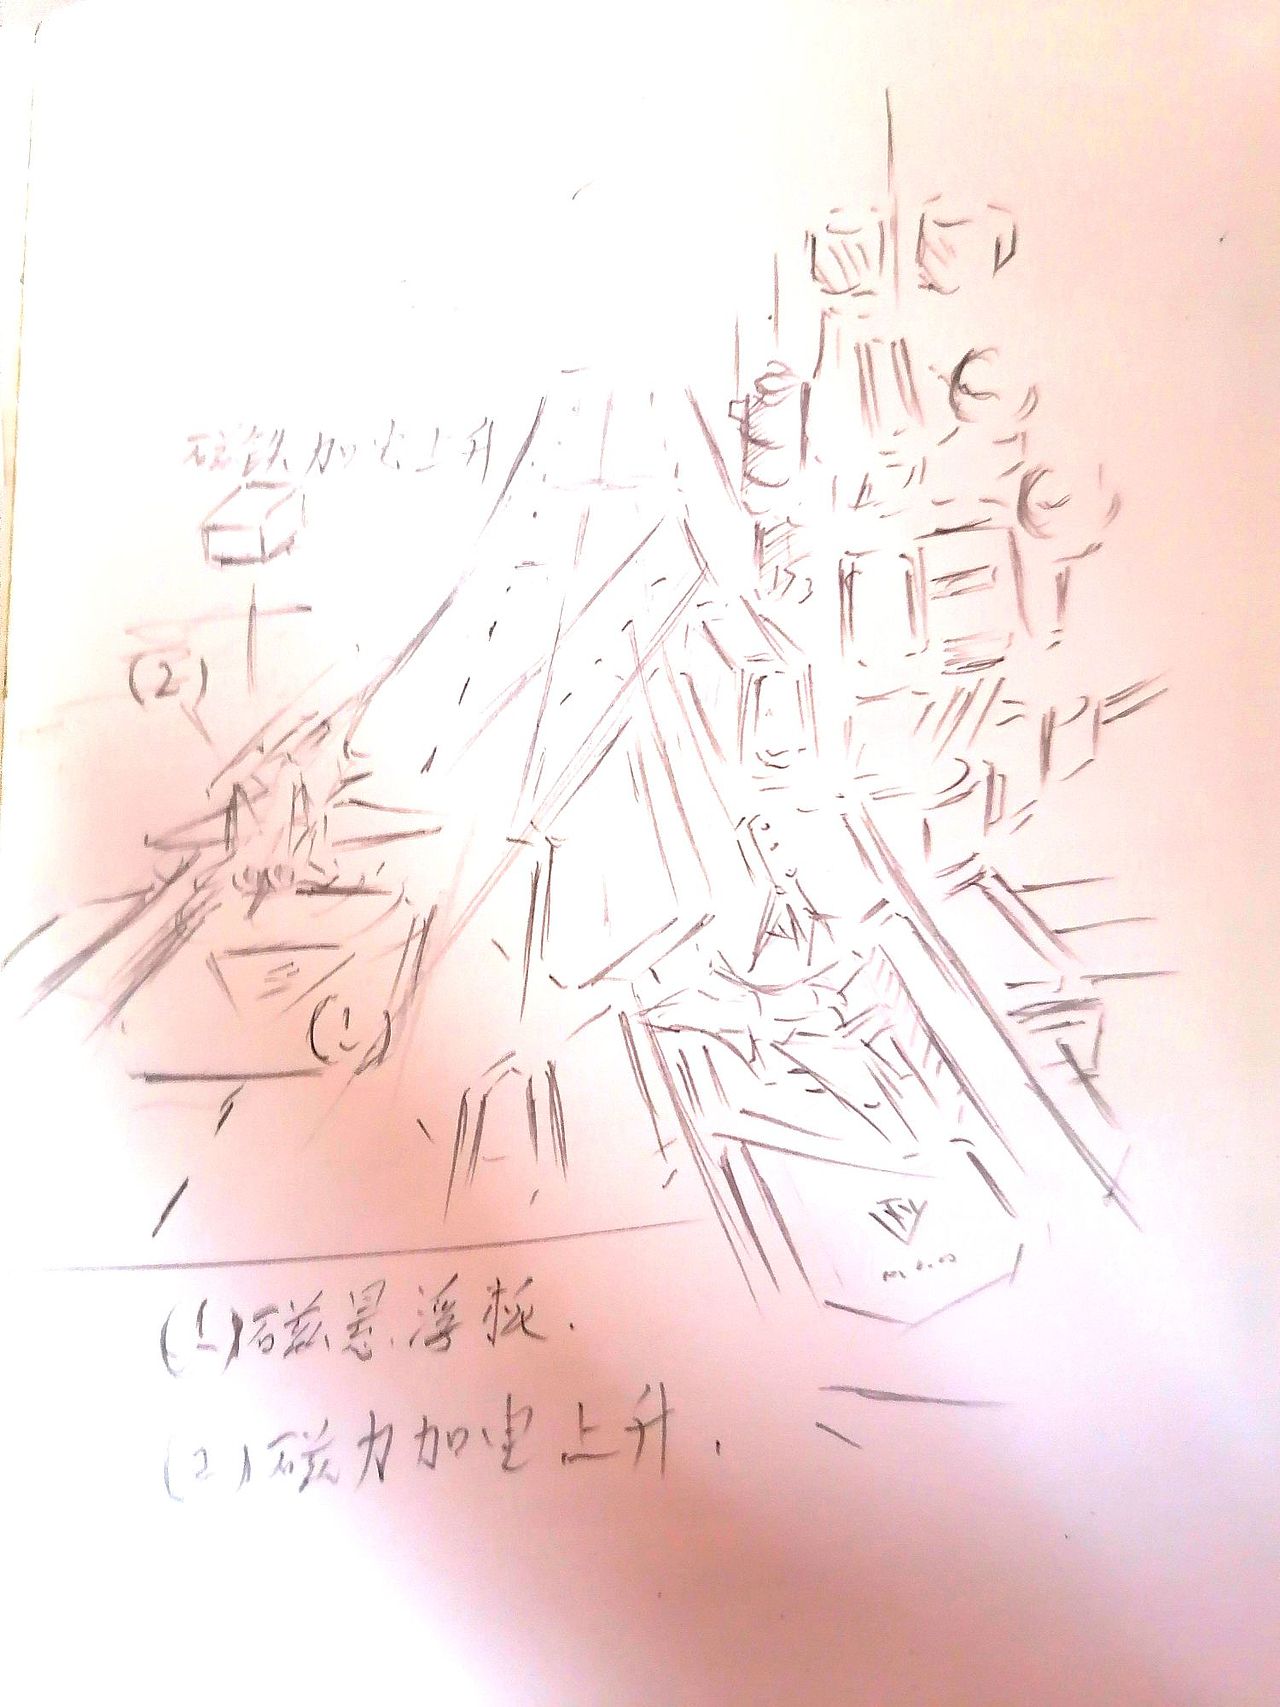 磁铁加电上升
(2)
(1)
(1)磁悬浮耗.
(2)磁力加电上升.